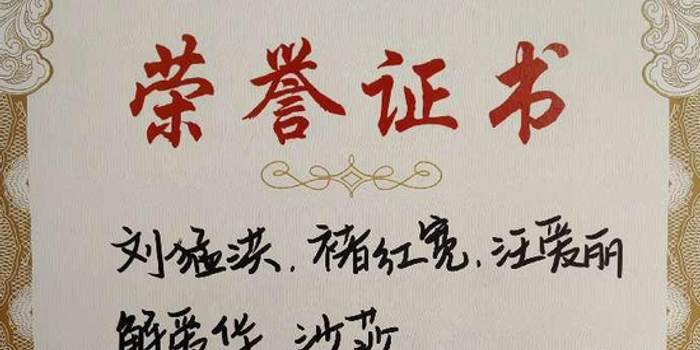 荣誉证书
刘猛洪、褚红宽、汪爱丽
解爱华 沙莎